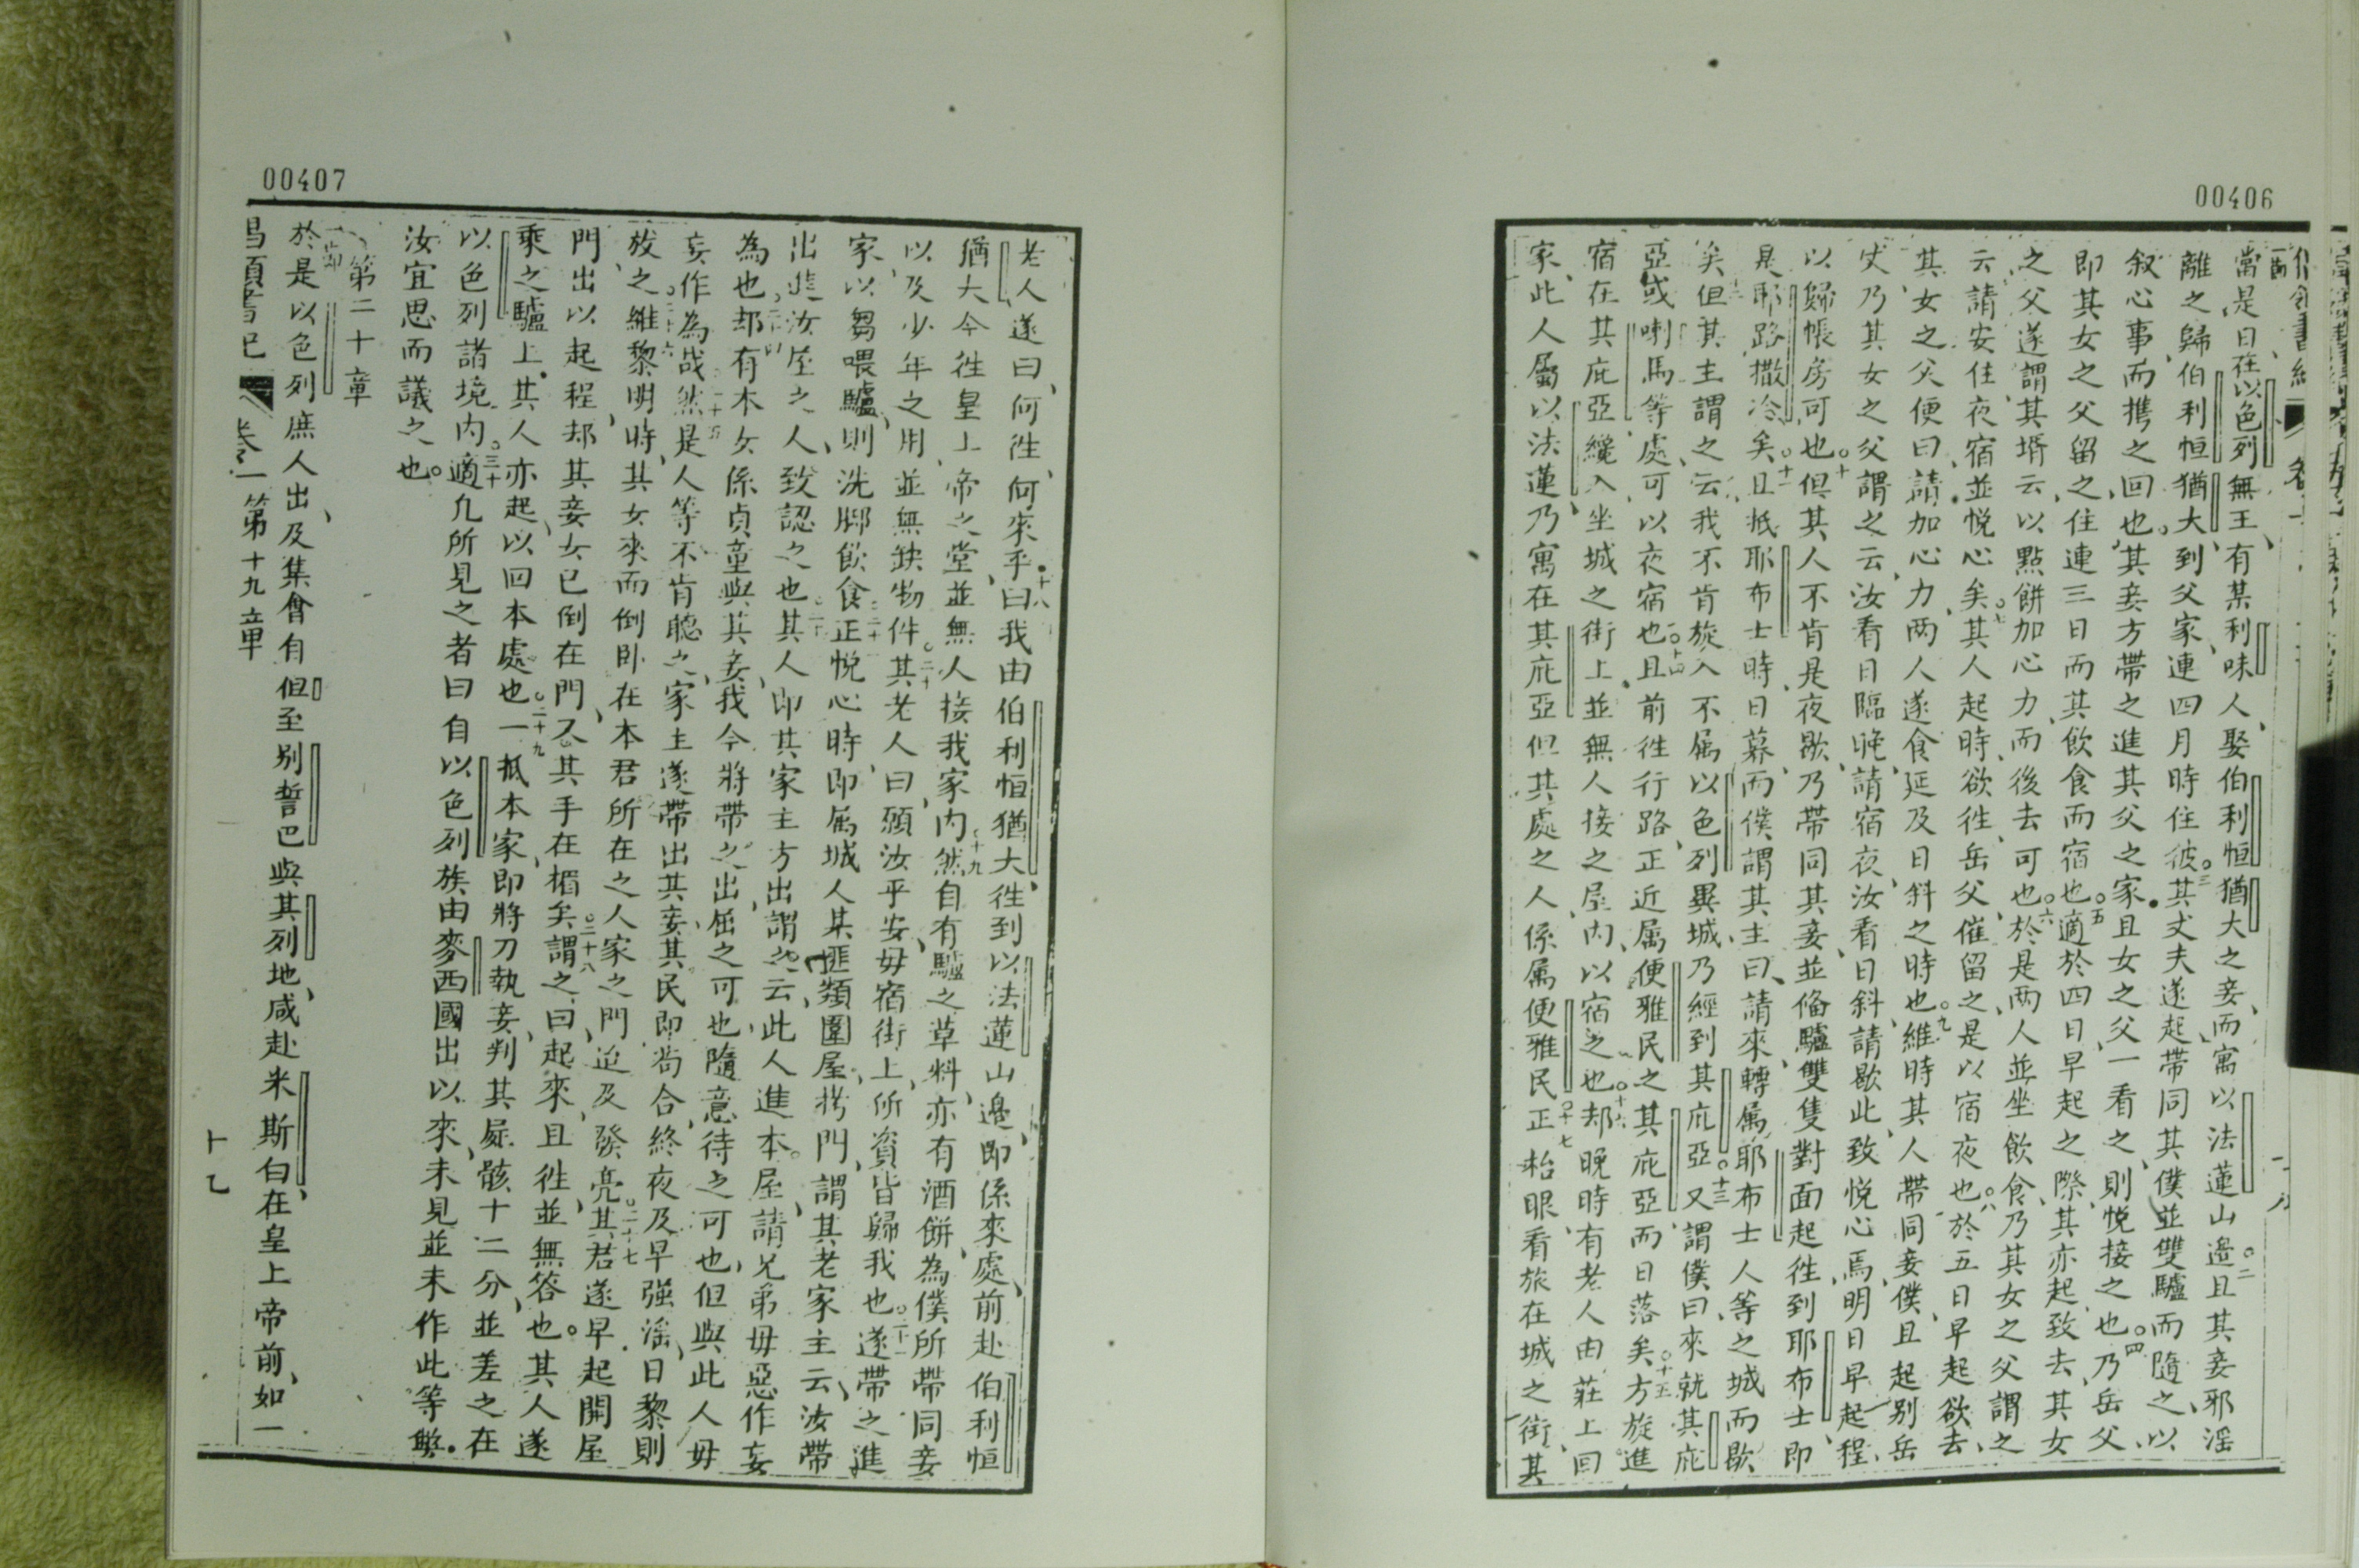 00406
當是日在以色列無王有某利味人娶伯利恒猶大之妾而寓以法蓮山邊○二且其妾邪淫
離之歸伯利恒猶大到父家連四月時住彼○三其丈夫遂起帶同其僕並雙驢而隨之以
叙心事而携之回也其妾方帶之進其父之家且女之父一看之則悅接之也○四乃岳父
即其女之父留之住連三日而其飲食而宿也○五適於四日早起之際其亦起致去其女
之父遂謂其壻云以點餅加心力而後去可也○六於是两人並坐飲食乃其女之父謂之
云請安住夜宿並悅心矣○七其人起時欲徃岳父催留之是以宿夜也○八於五日早起欲去
其女之父便曰請加心力两人遂食延及日斜之時也○九維時其人帶同妾僕且起别岳
丈乃其女之父謂之云汝看日臨晚請宿夜汝看日斜請歇此致悅心焉明日早起程
以歸帳房可也○十但其人不肯是夜歇乃帶同其妾並俻驢雙隻對面起徃到耶布士即
是耶路撒冷矣○十一且抵耶布士時日暮而僕謂其主曰請來轉属耶布士人等之城而歇
矣但其主謂之云我不肯旋入不属以色列異城乃經到其庇亞○十三又謂僕曰來就其庇
亞或喇馬等處可以夜宿也○十四且前徃行路正近属便雅民之其庇亞而日落矣○十五方旋進
宿在其庇亞纔入坐城之街上並無人接之屋內以宿之也○十六却晚時有老人由莊上回
家此人屬以法蓮乃寓在其庇亞但其處之人係属便雅民正○十七枱眼看旅在城之街其
00407
老人遂曰何徃何來乎十八曰我由伯利恒猶大徃到以法蓮山邊即係來處前赴伯利恒
猶大今徃皇上帝之堂並無人接我家內○十九然自有驢之草料亦有酒餅為僕所帶同妾
以及少年之用並無缺物件○二十其老人曰願汝乎安毋宿街上所資皆歸我也○二十一遂帶之進
家以芻喂驢則洗脚飲食二十二正悅心時即属城人某匪類圍屋拷門謂其老家主云汝帶
出進汝屋之人致認之也○二十三其人即其家主方出謂之云此人進本屋請兄弟毋惡作妄
為也○二十四却有本女係貞童與其妾我今將帶之出屈之可也隨意待之可也但與此人毋
妄作為哉○二十五然是人等不肯聽之家主遂帶出其妾其民即茍合終夜及早强淫日黎則
放之○二十六維黎明時其女來而倒卧在本君所在之人家之門迨及發亮○二十七其君遂早起開屋
門出以起程却其妾女已倒在門又其手在楣矣○二十八謂之曰起來且徃並無答也其人遂
乘之驢上其人亦起以回本處也○二十九一抵本家即將刀執妾判其屍骸十二分並差之在
以色列諸境内○三十適凢所見之者曰自以色列族由麥西國出以來未見並未作此等弊
汝宜思而議之也
第二十章
於是以色列庶人出及集會自但至别誓巴與其列地咸赴米斯白在皇上帝前如一
卷一 第十九章